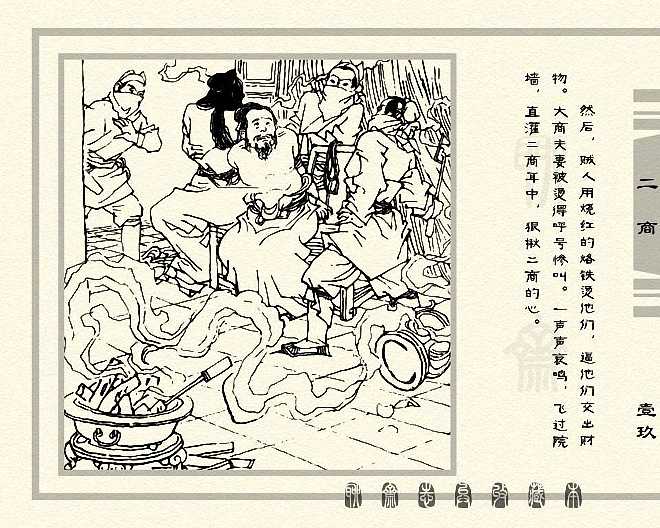 然后，贼人用烧红的烙铁烫他们，逼他们交出财
物。大商夫妻被烫得呼号惨叫。一声声哀鸣，飞过院
墙，直灌二商耳中，狠揪二商的心。
二商
壹玖
聊斋志异收藏本